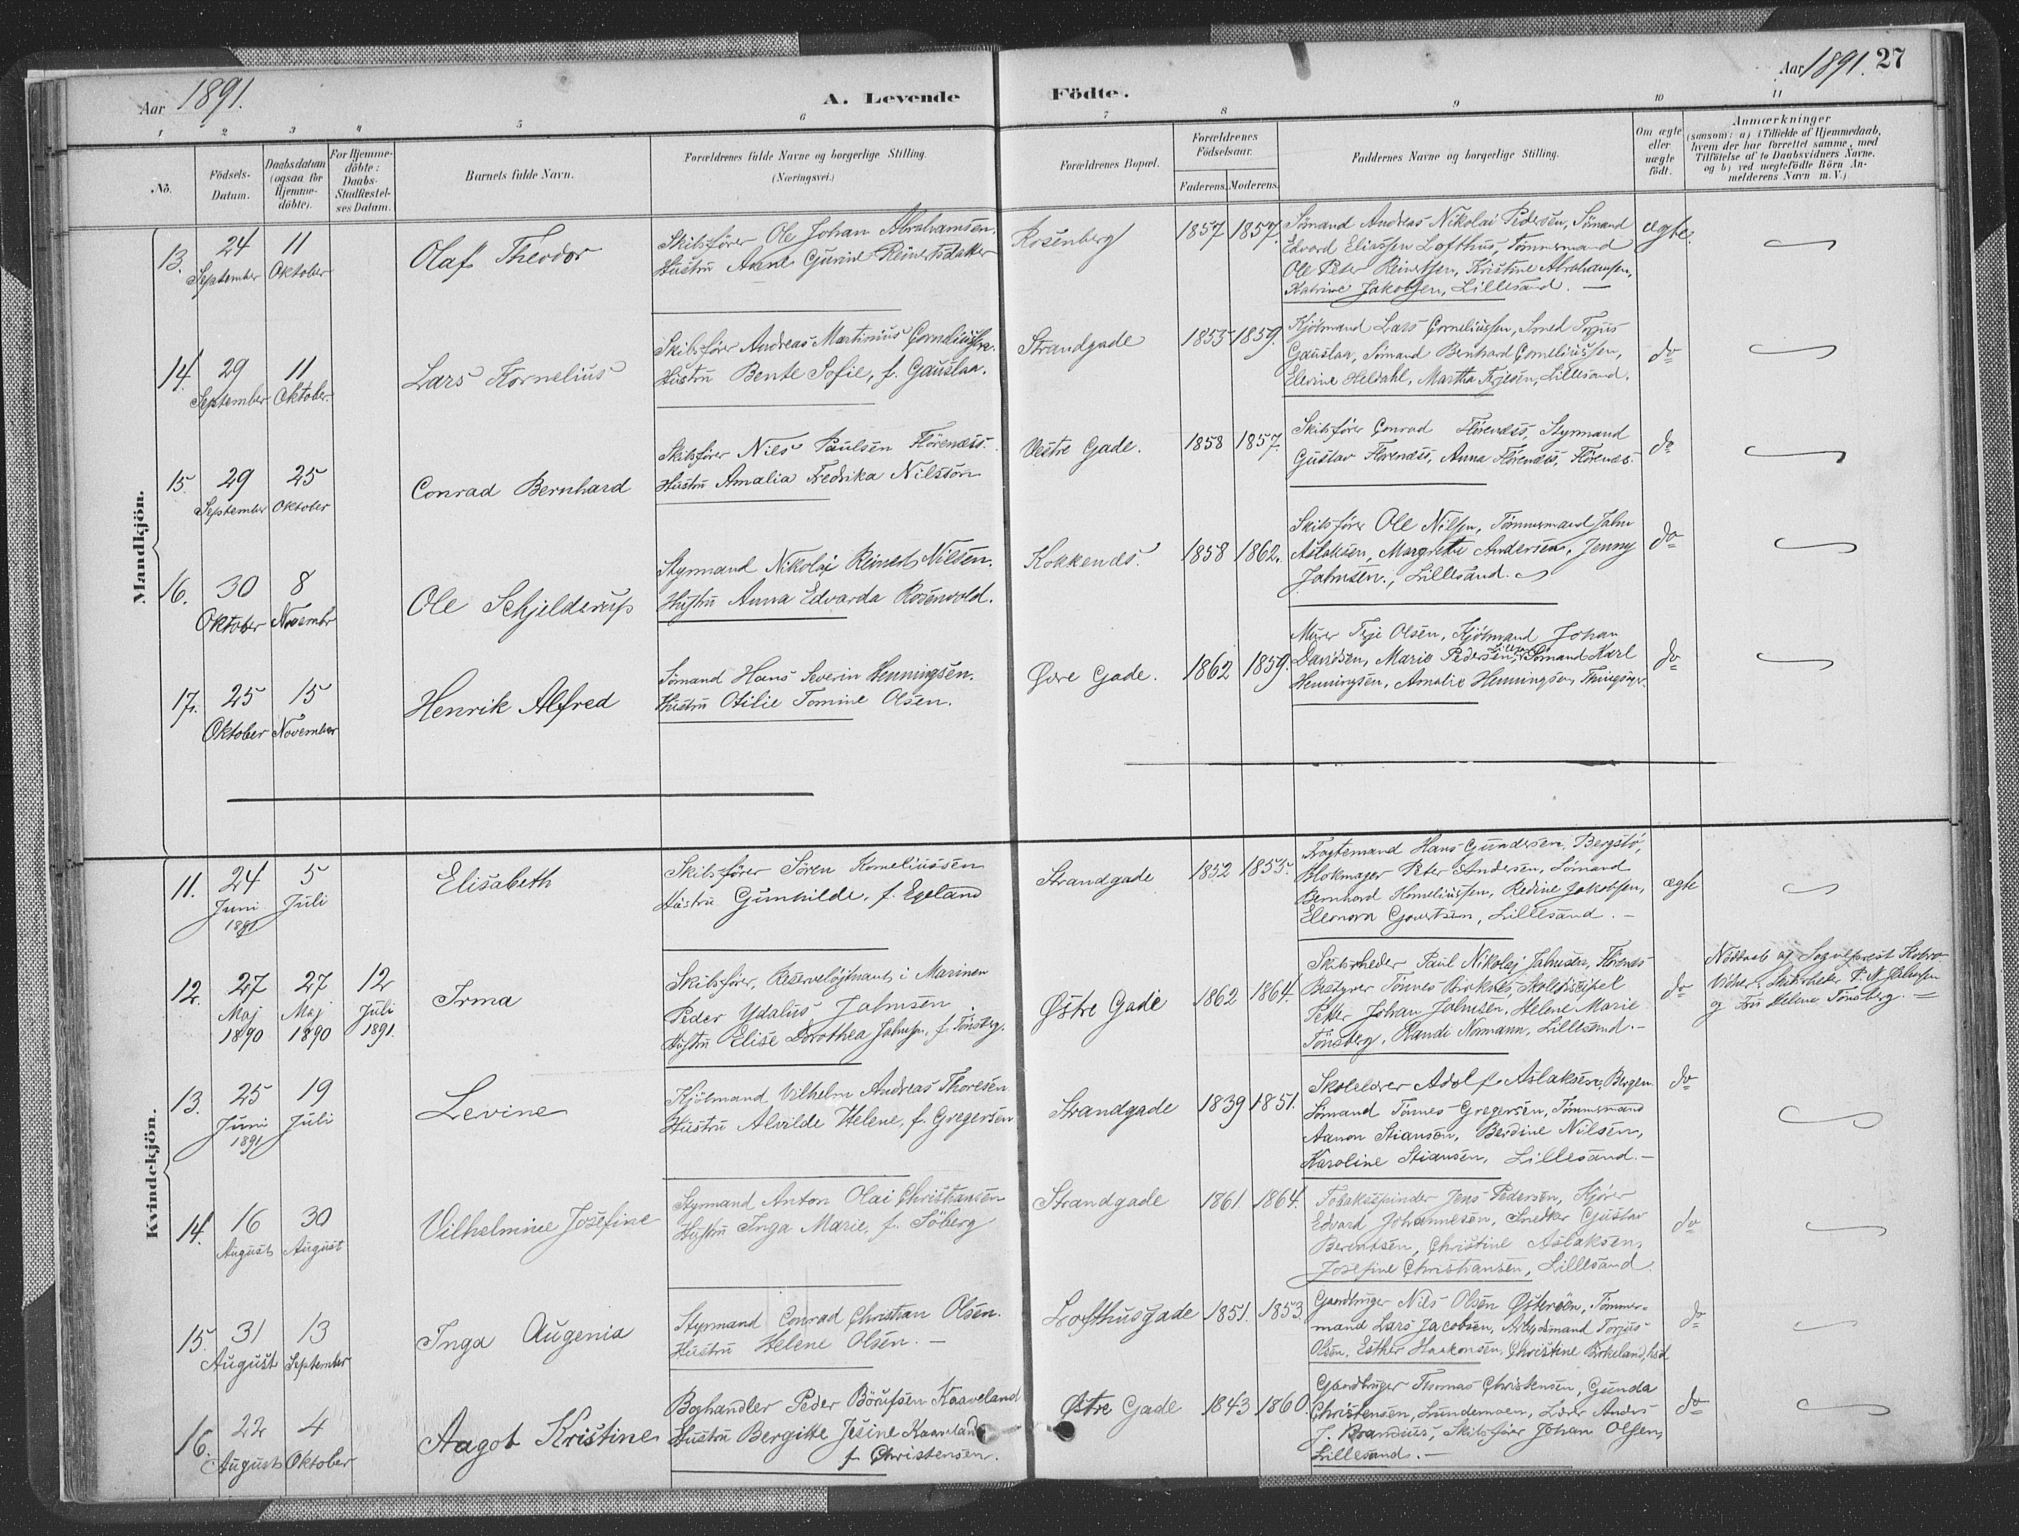 Aar 1891.
A. Levende Födte.
Aar 1891. 27
1 2 3 4 5 6 7 8 9 10 11
No.
Födsels-Datum.
Daabsdatum (ogsaa for Hjemme-döbte).
For Hjemme-döbte: Daabs-Stadfæstel-ses Datum.
Barnets fulde Navn.
Forældrenes fulde Navne og borgerlige Stilling. (Næringsvei.)
Forældrenes Bopæl.
Forældrenes Födselsaar.
Faderens. Moderens.
Faddernes Navne og borgerlige Stilling.
Om ægte eller uægte födt.
Anmærkninger
(saasom: a) i Tilfælde af Hjemmedaab,
hvem der har forrettet samme, med
Tilföielse af to Daabsvidners Navne,
og b) ved uægtefödte Börn An-
melderens Navn m. V.)
Mandkjön.
13. 24 September 11 Oktober
Olaf Theodor
Skibsfører Ole Johan Abrahamsen.
Hustru Anne Gurine Reinertsdatter
Rosenberg
1857 1857.
Sømand Andreas Nikolai Pedersen, Sömand
Edvard Eliassen Lofthus, Tømmermand
Ole Peter Reinertsen, Kristine Abrahamsen,
Katrine Jakobsen, Lillesand.
ægte.
14. 29 September 11 Oktober.
Lars Kornelius
Skibsfører Andreas Martinius Corneliussen.
Hustru Bente Sofie, f. Gauslaa.
Strandgade
1855 1859.
Kjöbmand Lars Corneliussen, Smed Torjus
Gauslaa, Sömand Bernhard Corneliussen,
Elevine Heldahl, Martha Terjesen, Lillesand.
do
15. 29 September 25 Oktober
Conrad Bernhard
Skibsfører Nils Paulsen Flörenæs.
Hustru Amalia Fredrika Nilsson
Vestre Gade.
1858 1857.
Skibsfører Conrad Flörenæs, Styrmand
Gustav Florenæs, Anna Flörenæs, Flörenæs.
do
16. 30 Oktober 8 Novembr
Ole Schjelderup
Styrmand Nikolai Reinert Nielsen.
Hustru Anna Edvarda Rosenvold.
Kokkenæs.
1858 1862.
Skibsfører Ole Nilsen, Tømmermand Jahn
Aslaksen, Margrethe Andersen, Jenny
Jahnsen, Lillesand.
do
17. 25 Oktober 15 November
Henrik Alfred
Sømand Hans Severin Henningsen.
Hustru Otilie Tomine Olsen.
Øvre Gade.
1862 1859.
Murer Terje Olsen, Kjøbmand Johan
Davidsen, Marie Pedersen, Sömand Karl
Henningsen, Amalie Henningsen,
do
Kvindekjön.
11. 24 Juni 1891 5 Juli
Elisabeth
Skibsfører Sören Korneliussen
Hustru Gunhilde, f. Egeland
Strandgade
1852 1855.
Fragtemand Hans Gundersen, Bergstö,
Blokmager Peter Andersen, Sømand
Bernhard Korneliussen, Redine Jakobsen,
Eleonora Govertsen, Lillesand.
ægte
12. 27 Maj 1890 27 Maj 1890 12 Juli 1891.
Irma
Skibsfører, Reserveløjtnant i Marinen
Peder Ydalius Jahnsen
Hustru Elise Dorothea Jahnsen, f. Tönsberg.
Østre Gade
1862 1864.
Skibsrheder Paul Nikolaj Jahnsen, Flörenæs
Bestyrer Tönnes Brokelo, Skoledisipel
Petter Johan Jahnsen, Helene Marie
Tönsberg, Randi Normann, Lillesand.
do
Nöddaab af Sogneprest
Vidner: Skibsrheder P. N. Jahnsen
og Fru Helene Tönsberg.
13. 25 Juni 1891 19 Juli
Levine
Kjöbmand Vilhelm Andreas Thoresen
Hustru Alvilde Helene, f. Gregersen
Strandgade
1839 1851.
Skolelærer Adolf Aslaksen, Bergen.
Sømand Tönnes Gregersen, Tömmermand
Aanon Stiansen, Berdine Nilsen,
Karoline Stiansen, Lillesand.
do
14. 16 August 30 August
Vilhelmine Josefine
Styrmand Anton Olai Christiansen
Hustru Inga Marie, f. Söberg
Strandgade
1861. 1864.
Tobakspinder Jens Pedersen, Kjører
Edvard Johannesen, Snedker Gustav
Berentsen, Christine Aslaksen,
Josefine Christiansen, Lillesand.
do
15. 31 August 13 September
Inga Augenia
Styrmand Conrad Christian Olsen.
Hustru Helene Olsen.
Lofthusgade
1851. 1853.
Gaardbruger Nils Olsen Østeröen, Tömmer-
mand Lars Jacobsen, Arbejdsmand Torjus
Olsen, Esther Haakonsen, Christine Birkeland, Lsd
do
16. 22 August 4 Oktober
Aagot Kristine
Boghandler Peder Börufsen Kaaveland
Hustru Bergitte Jesine Kaaveland
f. Christensen.
Østre Gade
1843 1860.
Gaardbruger Thomas Christensen, Gunda
Christensen, Lundemoen, Lærer Anders
J. Brandius, Skibsfører Johan Olsen,
Lillesand.
do